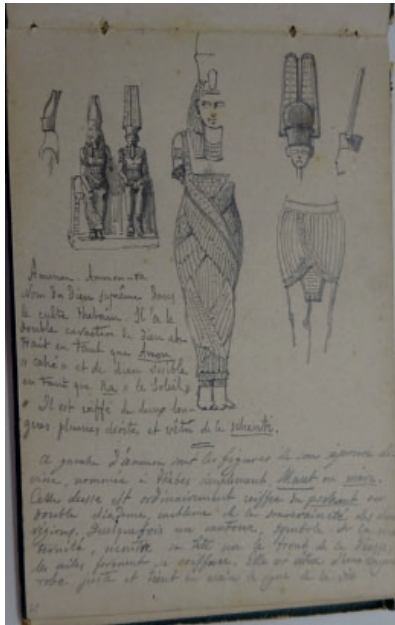 Ammon. Ammon-ra
Nom du Dieu suprême dans
le culte thébain. Il a le
double caractère de Dieu abs
trait en tant que Amon
« caché » et de dieu visible
en tant que Ra « le Soleil »
Il est coiffé de deux lon-
gues plumes droites et vêtu de la schenti.
A gauche d'Ammon sont les figures de son épouse di
vine, nommée à Thèbes simplement Maut ou
Cette déesse est ordinairement coiffée du pschent ou
double diadème, emblème de la souveraineté des deux
régions. Quelquefois un vautour, symbole de la ma
ternité, montre sa tête sur le front de la Déesse,
les ailes forment la coiffure. Elle est vêtue d'une longue
robe juste et tient en main le signe de la vie